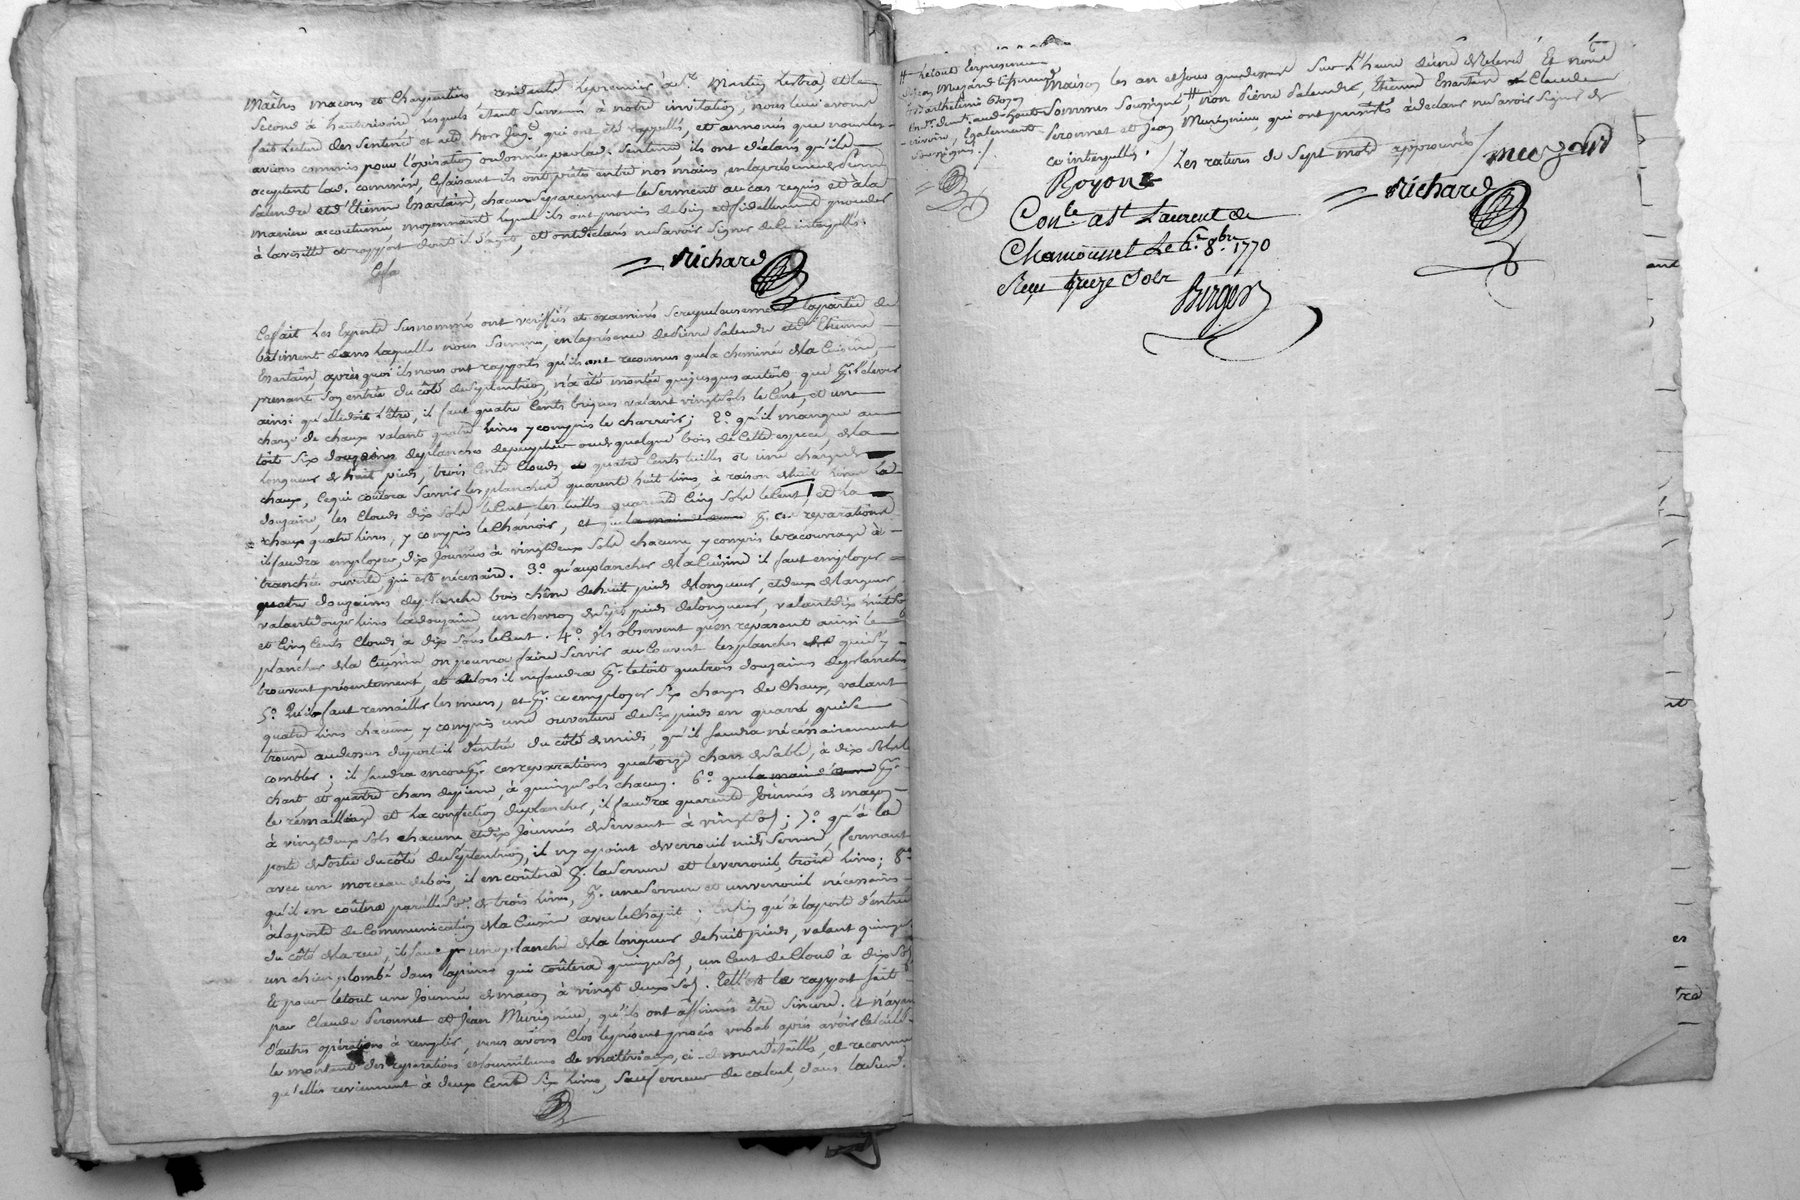 Maîtres macons et Charpentiers residents le premier à St. Martin Lestra, et le
second à hauterivoire, lesquels étant Survenus à notre invitation, nous leur avons
fait Lecture des Sentence et acte hors Jugt. qui ont été rappellés, et annoncés que nous les
avions commis pour l'opération ordonnée par lad. Sentence ils ont déclarés qu'ils
acceptent lad. commission, Ce faisant ils ont prêtés entre nos mains, en la présence de Pierre
Palendre et d'Etienne Essartain, chacun Séparement le Serment au cas requis et à la
maniere accoutumée, moyennant lequel ils ont promis de bien et fidellement proceder
à la visitte et rapport dont il s'agit, et ont déclarés ne savoir Signer de ce interpellés.
Richard
Ce fa
Ce fait Les Experts Susnommés ont veriffiés et examinés Scrupuleusement la partie de
bâtiment dans laquelle nous Sommes, en la présence de Pierre Palendre et d'Etienne
Essartain, après quoi ils nous ont rapportés qu'ils ont reconnus que la cheminée de la Cuisine,
prenant Son entrée du côté de Septentrion, n'a été montée que jusques au toit, que pr. l'elever
ainsi qu'elle doit l'être, il faut quatre Cents briques valant vingt Sols le Cent, et une
charge de chaux valant quatre livres y compris le charroir; 2.° qu'il manque au
toit Six douzaines de planches de peuplier ou de quelque bois de Cette espece, de la
longueur de huit pieds, trois Cents Clouds, et quatre Cents tuilles et une charge de
chaux, Ce qui coûtera Savoir les planches quarente huit livres, à raison de huit livres la
douzaine, les Clouds dix Sols le Cent, les tuilles quarente Cinq Sols le Cent, et la
chaux quatre livres, y compris le Charroir, et que la main d'œuvre pr. ces reparations
il faudra employer dix Journées à vingt deux Sols chacune y compris le recouvrage à
tranchée ouverte qui est nécessaire. 3.° qu'au plancher de la Cuisine il faut employer
quatre douzaines de planche bois chêne de huit pieds de longueur, et d'eux de largeur,
valant douze livres la douzaine un chevron de Sept pieds de longueur, valant dix huit Sols
et Cinq Cents Clouds à dix Sols le Cent. 4.° Ils observent qu'en reparant ainsi le
plancher de la Cuisine on pourra faire Servir au Couvert les planches qui s'y
trouvent présentement, et alors il ne faudra pr. le toit que trois douzaines de planches
5.° Qu'il faut remailler les murs, et pr. ce employer Six charges de Chaux, valant
quatre livres chacune y compris une ouverture de Six pieds en quarré qui se
trouve au dessus du portail d'entrée du côté de midi, qu'il faudra nécessairement
combler; il faudra encore pr. ces reparations quatorze chars de Sable, à dix Sols le
chart, et quatre chars de pierre, à quinze Sols chacun. 6.° que la main d'œuvre pr.
le remaillage et la confection du plancher, il faudra quarente Journées de maçon
à vingt deux Sols chacune et dix Journées de Servant à vingt Sols; 7.° qu'à la
porte de Sortie du côté de Septentrion, il n'y a point de verrouil ni de Serrure, fermant
avec un morceau de bois, il en coûtera pr. la Serrure et le verrouil, trois livres; 8.°
qu'il en coûtera pareille So. de trois livres, pr. une Serrure et un verrouil nécessaires
à la porte de Communication de la Cuisine avec le Chapit; Enfin qu'à la porte d'entrée
du côté de la rue, il faut une planche de la longueur de huit pieds, valant quinze sols
un chien plombé dans la pierre qui coûtera quinze Sols, un Cent de Cloud à dix Sols
Et pour le tout une Journée de maçon à vingt deux Sols. Tel est le rapport fait
par Claude Peronnet et Jean Murigneux, qu'ils ont affirmés être Sincere. Et n'ayant
d'autres opérations à remplir, nous avons Clos le présent procès verbal après avoir Calculé
le montant des reparations et fournitures de matériaux, ci-devant détaillés, et reconnu
qu'elles reviennent à deux Cents Six livres, Sauf erreur de calcul, dans lad.
maison les an et Jour que dessus Sur L'heure de de Relevé. Et nous
Sommes Soussigné # non Pierre Palendre, Etienne Essartain et Claude
Peronnet et Jean Murigneux, qui ont parnellés à déclaré ne Savoir Signer de
ce interpellés. / Les ratures de Sept mots approuvés /
# Le tout En presence
de Jean Meyard
& Barthélémi Boyon
hauterivoire, Egalement
Soussignés. /
Meyard
Boyon
Richard
Conle. a St Laurent de
Chamousset Le 6e 8bre 1770
Reçu treize Sols
Berger